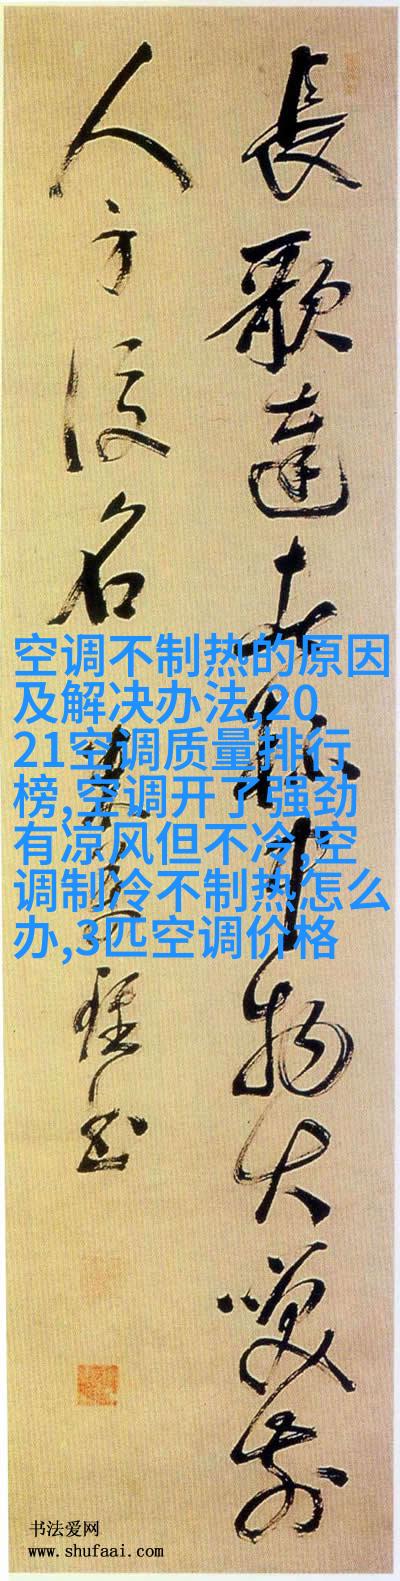 長歌達者杯中物大笑前
人身後名
空调不制热的原因
及解决办法,20
21空调质量排行
榜,空调开了强劲
有凉风但不冷,空
调制冷不制热怎么
办,3匹空调价格
书法爱网
www.shufaai.com